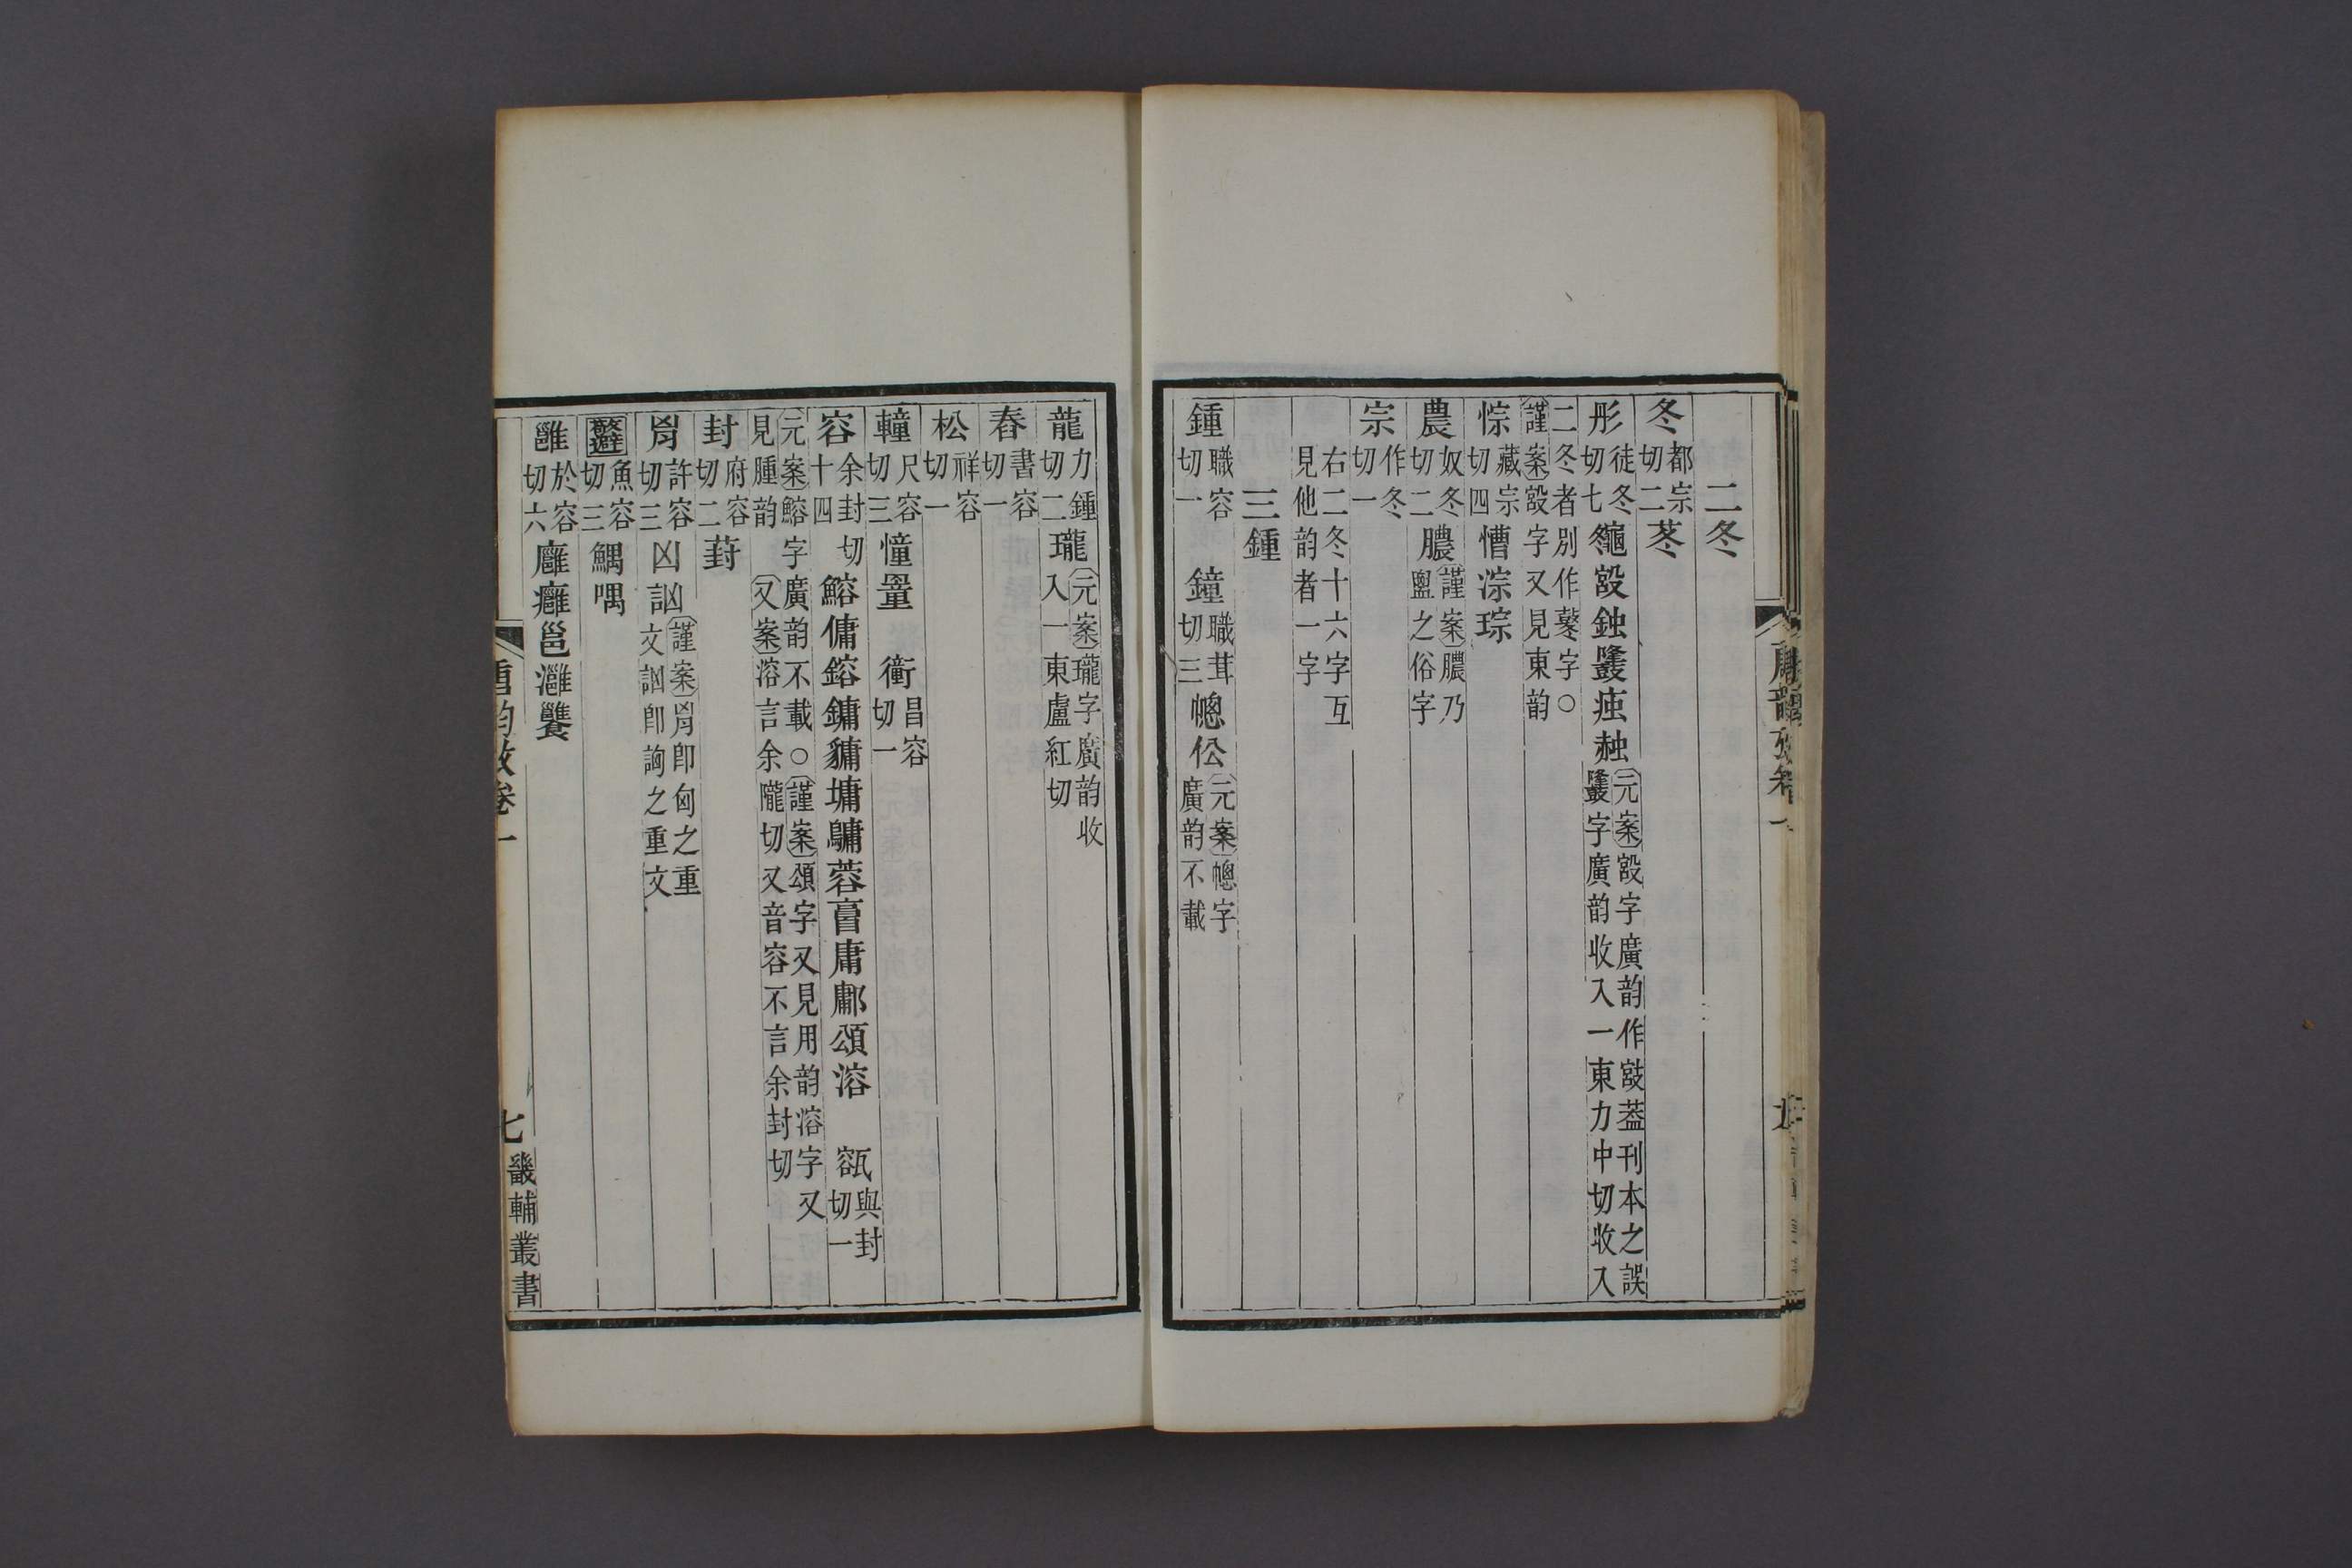 二冬
冬都宗切二苳
彤徒冬切七䶱㲁鉵鼟疼赨元案㲁字廣韵作㲁葢刊本之誤鼟字廣韵收入一東力中切收入
二冬者別作鼕字○謹案㲁字又見東韵
悰藏宗切四慒淙琮
農奴冬切二膿謹案膿乃盥之俗字
宗作冬切一
右二冬十六字互見他韵者一字
三鍾
鍾職容切一 鐘職茸切三幒伀元案幒字廣韵不載
龍力鍾切二瓏元案瓏字廣韵收入一東盧紅切
舂書容切一
松祥容切一
轀尺容切三憧罿 衝昌容切一
容余封切十四鰫傭鎔鏞貓墉鱅蓉䇯庸鄘頌溶 㼸與封切一
元案鰫字廣韵不載○謹案頌字又見用韵溶字又見腫韵又案溶言余隴切又音容不言余封切
封府容切二葑
胷許容切三凶訩謹案胷卽匈之重文訩卽詾之重文
避魚容切三鰅喁
雝於容切六廱癰邕灉饔
唐韵攷卷一
七
畿輔叢書